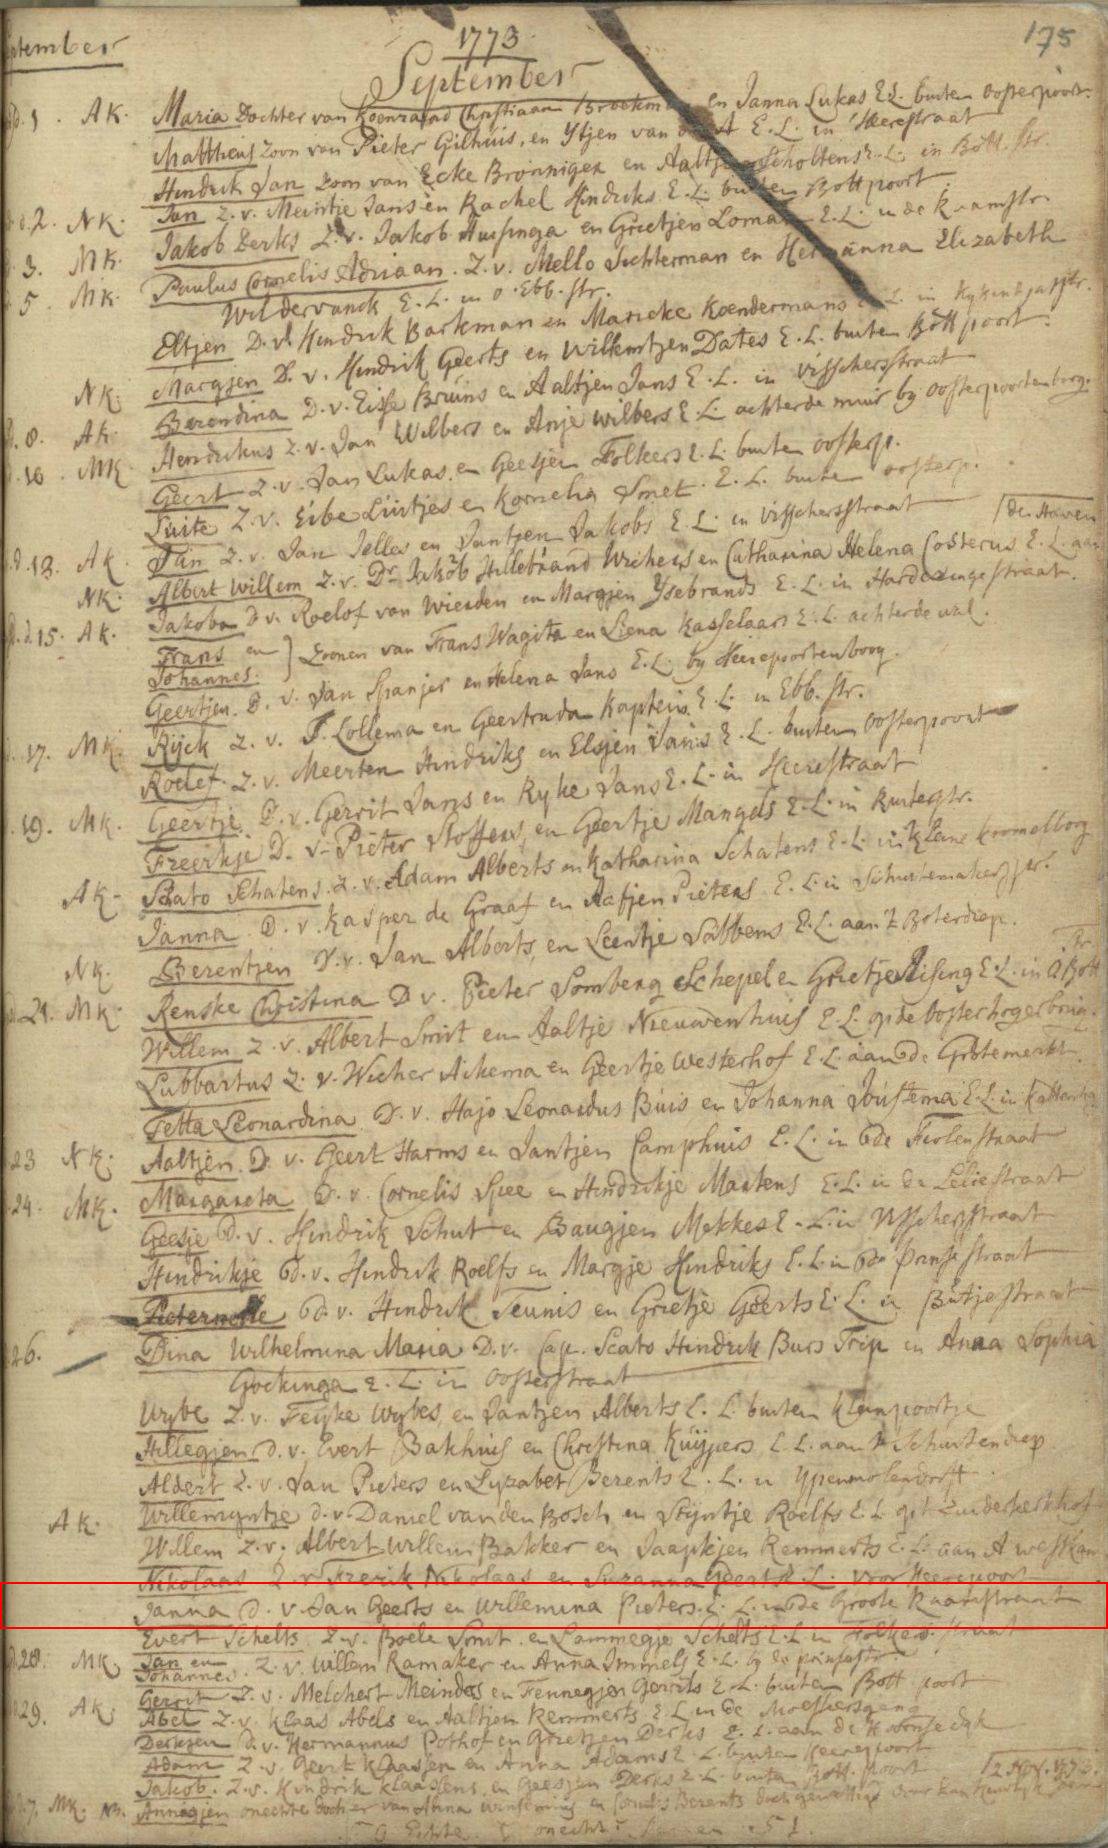 1773.
175
ptember
September
d. 1. AK. Maria Dochter van Koenraad Christiaan Broekm en Janna Lukas E.L. buiten oosterpoort.
Mattheus zoon van Pieter Gilhuis, en Ytjen van E.L. in Heerestraat
Hindrik Jan zoon van Ecke Bronniger en Aaltje Scholtens E.L. in Bott. str.
d. 2. NK. Jan Z.v. Meintje Jans en Rachel Hindriks E.L. buiten Bottpoort.
3. MK. Jakob Derks Z.v. Jakob Huisinga en Grietjen Loman E.L. in de Kramstr.
5 MK. Paulus Cornelis Adriaan. Z.v. Mello Sichterman en Hermanna Elizabeth
Wildervanck E.L. in o. Ebb. str.
Eltjen D.v. Hindrik Barkman en Marieke Koendermans E.L. in
NK. Margjen D.v. Hindrik Geerts en Willemtjen Dates E.L. buiten Bott poort.
d. 8. AK. Berendina D.v. Eise Bruins en Aaltjen Jans E.L. in Visscherstraat
d. 10. MK Hendrikus Z.v. Jan Wilbers en Anje Wilbers E.L. achter de muur by oosterpoortenborg.
Geert Z.v. Jan Lukas en Geesjen Folkers E.L. buiten oosterp.
Luite Z.v. Eibe Luitjes en Kornelia Smet. E.L. buiten oosterp.
d. 12. AK. Jan Z.v. Jan Jelles en Jantjen Jakobs E.L. in Visscherstraat
NK. Albert Willem Z.v. Dr. Jakob Hillebrand Wichers en Catharina Helena Costerus E.L. aan [der Haven
d. 15. AK. Jakoba D.v. Roelof van Wierden en Margjen Ysebrands E.L. in Harderingestraat.
Frans en } zoonen van Frans Wagita en Liena Kasselaars E.L. achter de wal.
Johannes.
Geertjen. D.v. Jan Spanjer en Helena Jans E.L. by Heerepoortenboog.
17. MK. Rijck Z.v. J. Lollema en Geertruda Kaptein E.L. in Ebb. str.
Roelef. Z.v. Meerten Hindriks en Elsjen Jans E.L. buiten oosterpoort
19. MK. Geertje D.v. Gerrit Jans en Ryke Jans E.L. in Heerestraat
Freerkje D.v. Pieter Stoffers, en Geertje Mangels E.L. in Ruiterstr.
AK. Scato Schatens. Z.v. Adam Alberts en Katharina Schatens E.L. in Kleine kromelboog
Janna. D.v. Kasper de Graaf en Aafjen Pieters E.L. in Schuitemakersstr.
NK. Berentjen D.v. Jan Alberts, en Leentje Sabbens E.L. aan 't Boterdiep.
d. 21. MK. Renske Christina D.v. Pieter Somberg Schepel en Grietje Elising E.L. in O Bott Str.
Willem Z.v. Albert Smit en Aaltje Nieuwenhuis E.L. op de oosterhogerbrug.
Lubbartus Z.v. Wicher Aikema en Geertje Westerhof E.L. aan de Grotemerkt.
Fetta Leonardina. D.v. Hajo Leonardus Buis en Johanna Joustema E.L. in
23 NK. Aaltjen. D.v. Geert Harms en Jantjen Camphuis E.L. in de Fiolenstraat
24. MK. Margareta D.v. Cornelis Spee en Hindrikje Martens E.L. in de Leliestraat
Geesje D.v. Hindrik Schut en Baugjen Mekkes E.L. in Visscherstraat
Hindrikje D.v. Hindrik Roelfs en Margje Hindriks E.L. in de Prinsestraat
Pieternelle D.v. Hindrik Teunis en Grietje Geerts E.L. in Butjestraat
26. Dina Wilhelmina Maria D.v. Cap. Scato Hindrik Buis Trip en Anna Sophia
Gockinga E.L. in Oosterstraat
Wybe Z.v. Feijke Wybes, en Jantjen Alberts E.L. buiten Kleinpoortje
Hillegjen D.v. Evert Bakhuis en Christina Kuijpers E.L. aan 't Schuitendiep
Aldert Z.v. Jan Pieters en Lyzabet Berents E.L. in Ypenmolendrift
AK. Willemyntje d.v. Daniel van den Bosch en Stijntje Roelfs E.L. op 't Zuiderkerkhof
Willem Z.v. Albert Willem Bakker en Jaapkjen Remmerts E.L. aan A westkant
Nikolaas Z.v. Frerik Nikolaas en Suzanna Geerts E.L. voor Heerepoort
Janna d.v. Jan Geerts en Willemina Pieters. E.L. in de Groote Raamstraat
Evert Schelts Z.v. Boele Smit en Lammegje Schelts E.L. in Folkers straat
d. 28. MK. Jan en Johannes. Z.v. Willem Ramaker en Anna Immels E.L. by de prinsestr
Gerrit Z.v. Melchert Meinders en Fennegjen Gerrits E.L. buiten Bott. poort
29. AK. Abel Z.v. Klaas Abels en Aaltjen Remmerts E.L. in de
Derkjen d.v. Hermannus Pothof en Grietjen Derks E.L. aan de Hoornsedyk
Adam Z.v. Geert Klaassen en Anna Adams E.L. buiten Heerepoort
Jakob. Z.v. Hindrik Klaassens en Geesjen Derks E.L. buiten Bott. poort [2 Nov. 1773.
d. 7. MK. NB. Annegjen onechte dochter van Anna en Cornelis Berents doch
Echte onecht